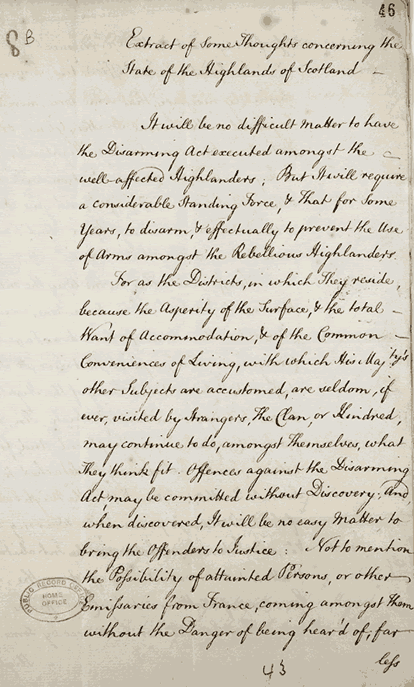 46
8B
Extract of Some Thoughts concerning the
State of the Highlands of Scotland —
It will be no difficult Matter to have
the Disarming Act executed amongst the —
well-affected Highlanders; But It will require
a considerable Standing Force, & That for Some
Years, to disarm, & effectually to prevent the Use
of Arms amongst the Rebellious Highlanders.
For as the Districts, in which They reside,
because the Asperity of the Surface, & the total —
Want of Accommodation, & of the Common —
Conveniences of Living, with which His Maj:ty's
other Subjects are accustomed, are seldom, if
ever, visited by Strangers, The Clan, or Kindred,
may continue to do, amongst Themselves, what
They think fit. Offences against the Disarming
Act may be committed without Discovery; And,
when discovered, It will be no easy Matter to
bring the Offenders to Justice: Not to mention
the Possibility of attainted Persons, or other
Emissaries from France, coming amongst Them
without the Danger of being hear'd of, far
less
43
PUBLIC RECORD OFFICE
HOME
OFFICE